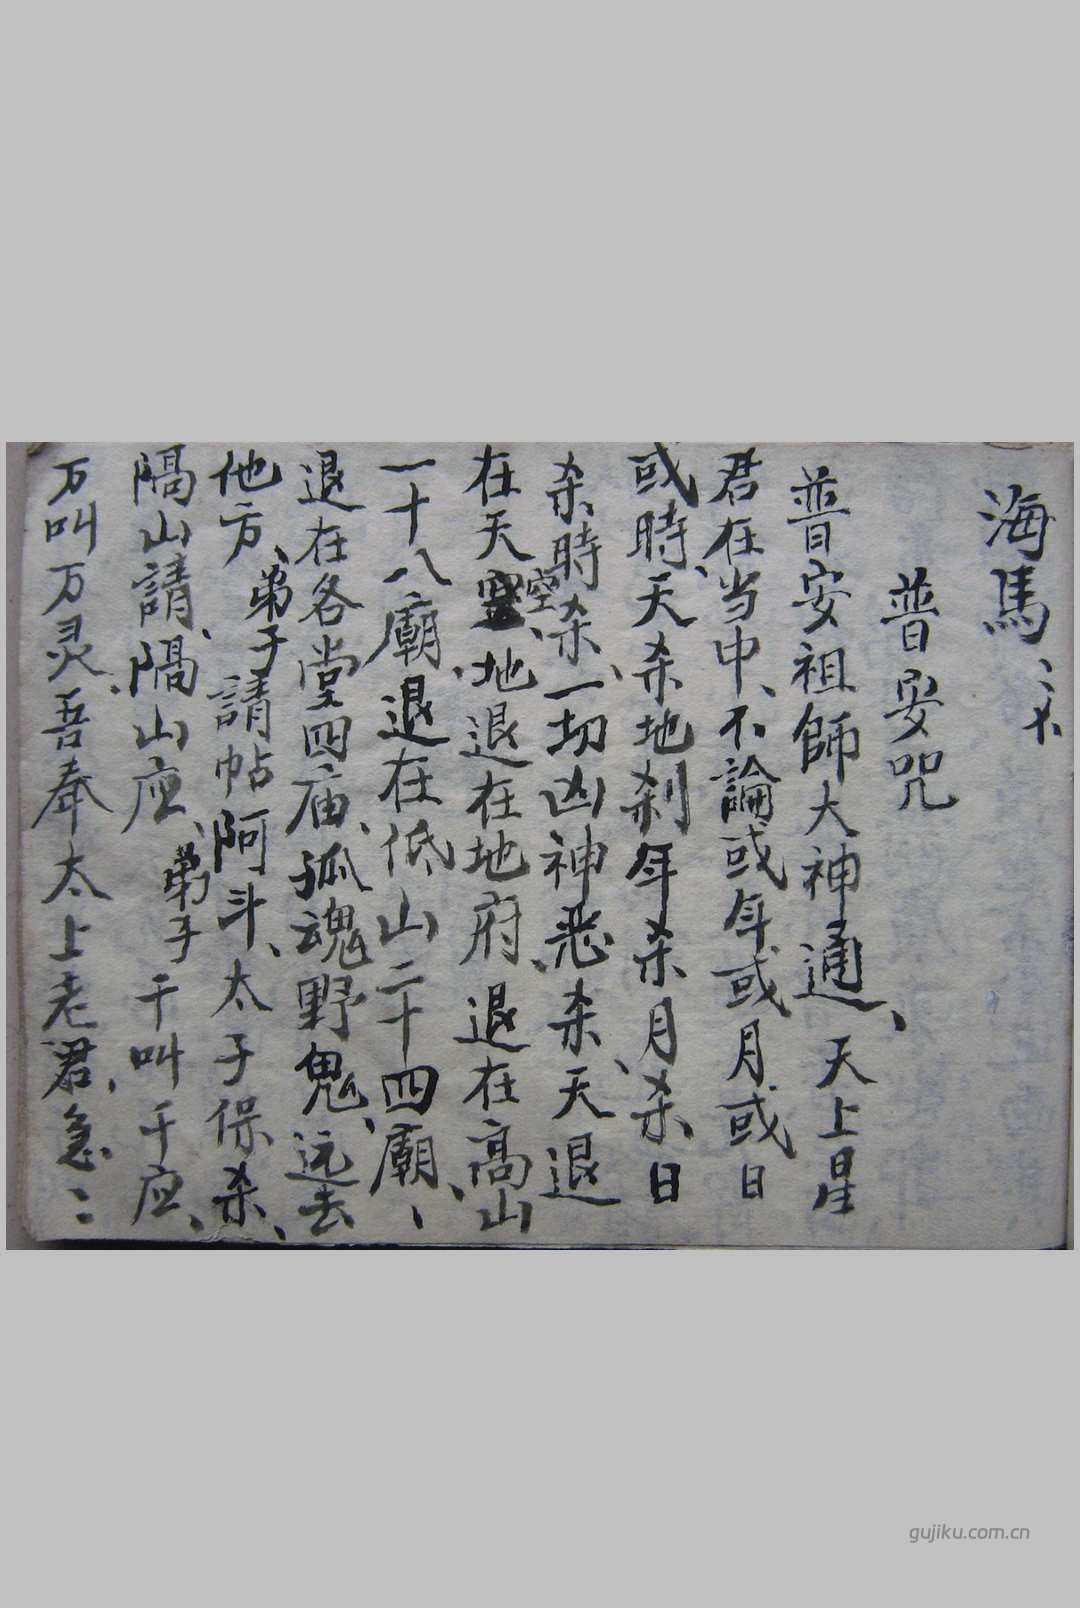 海馬、
普安咒
普安祖師大神通、天上星
君在当中、不論或年或月或日
或時、天杀地刹年杀月杀日
杀時杀、一切凶神恶杀、天退
在天空、地退在地府退在高山
一十八廟、退在低山二十四廟、
退在各堂四庙、孤魂野鬼、远去
他方、弟子請帖阿斗、太子保杀、
隔山請、隔山应、弟子千叫千应、
万叫万灵、吾奉太上老君、急：
gujiku.com.cn